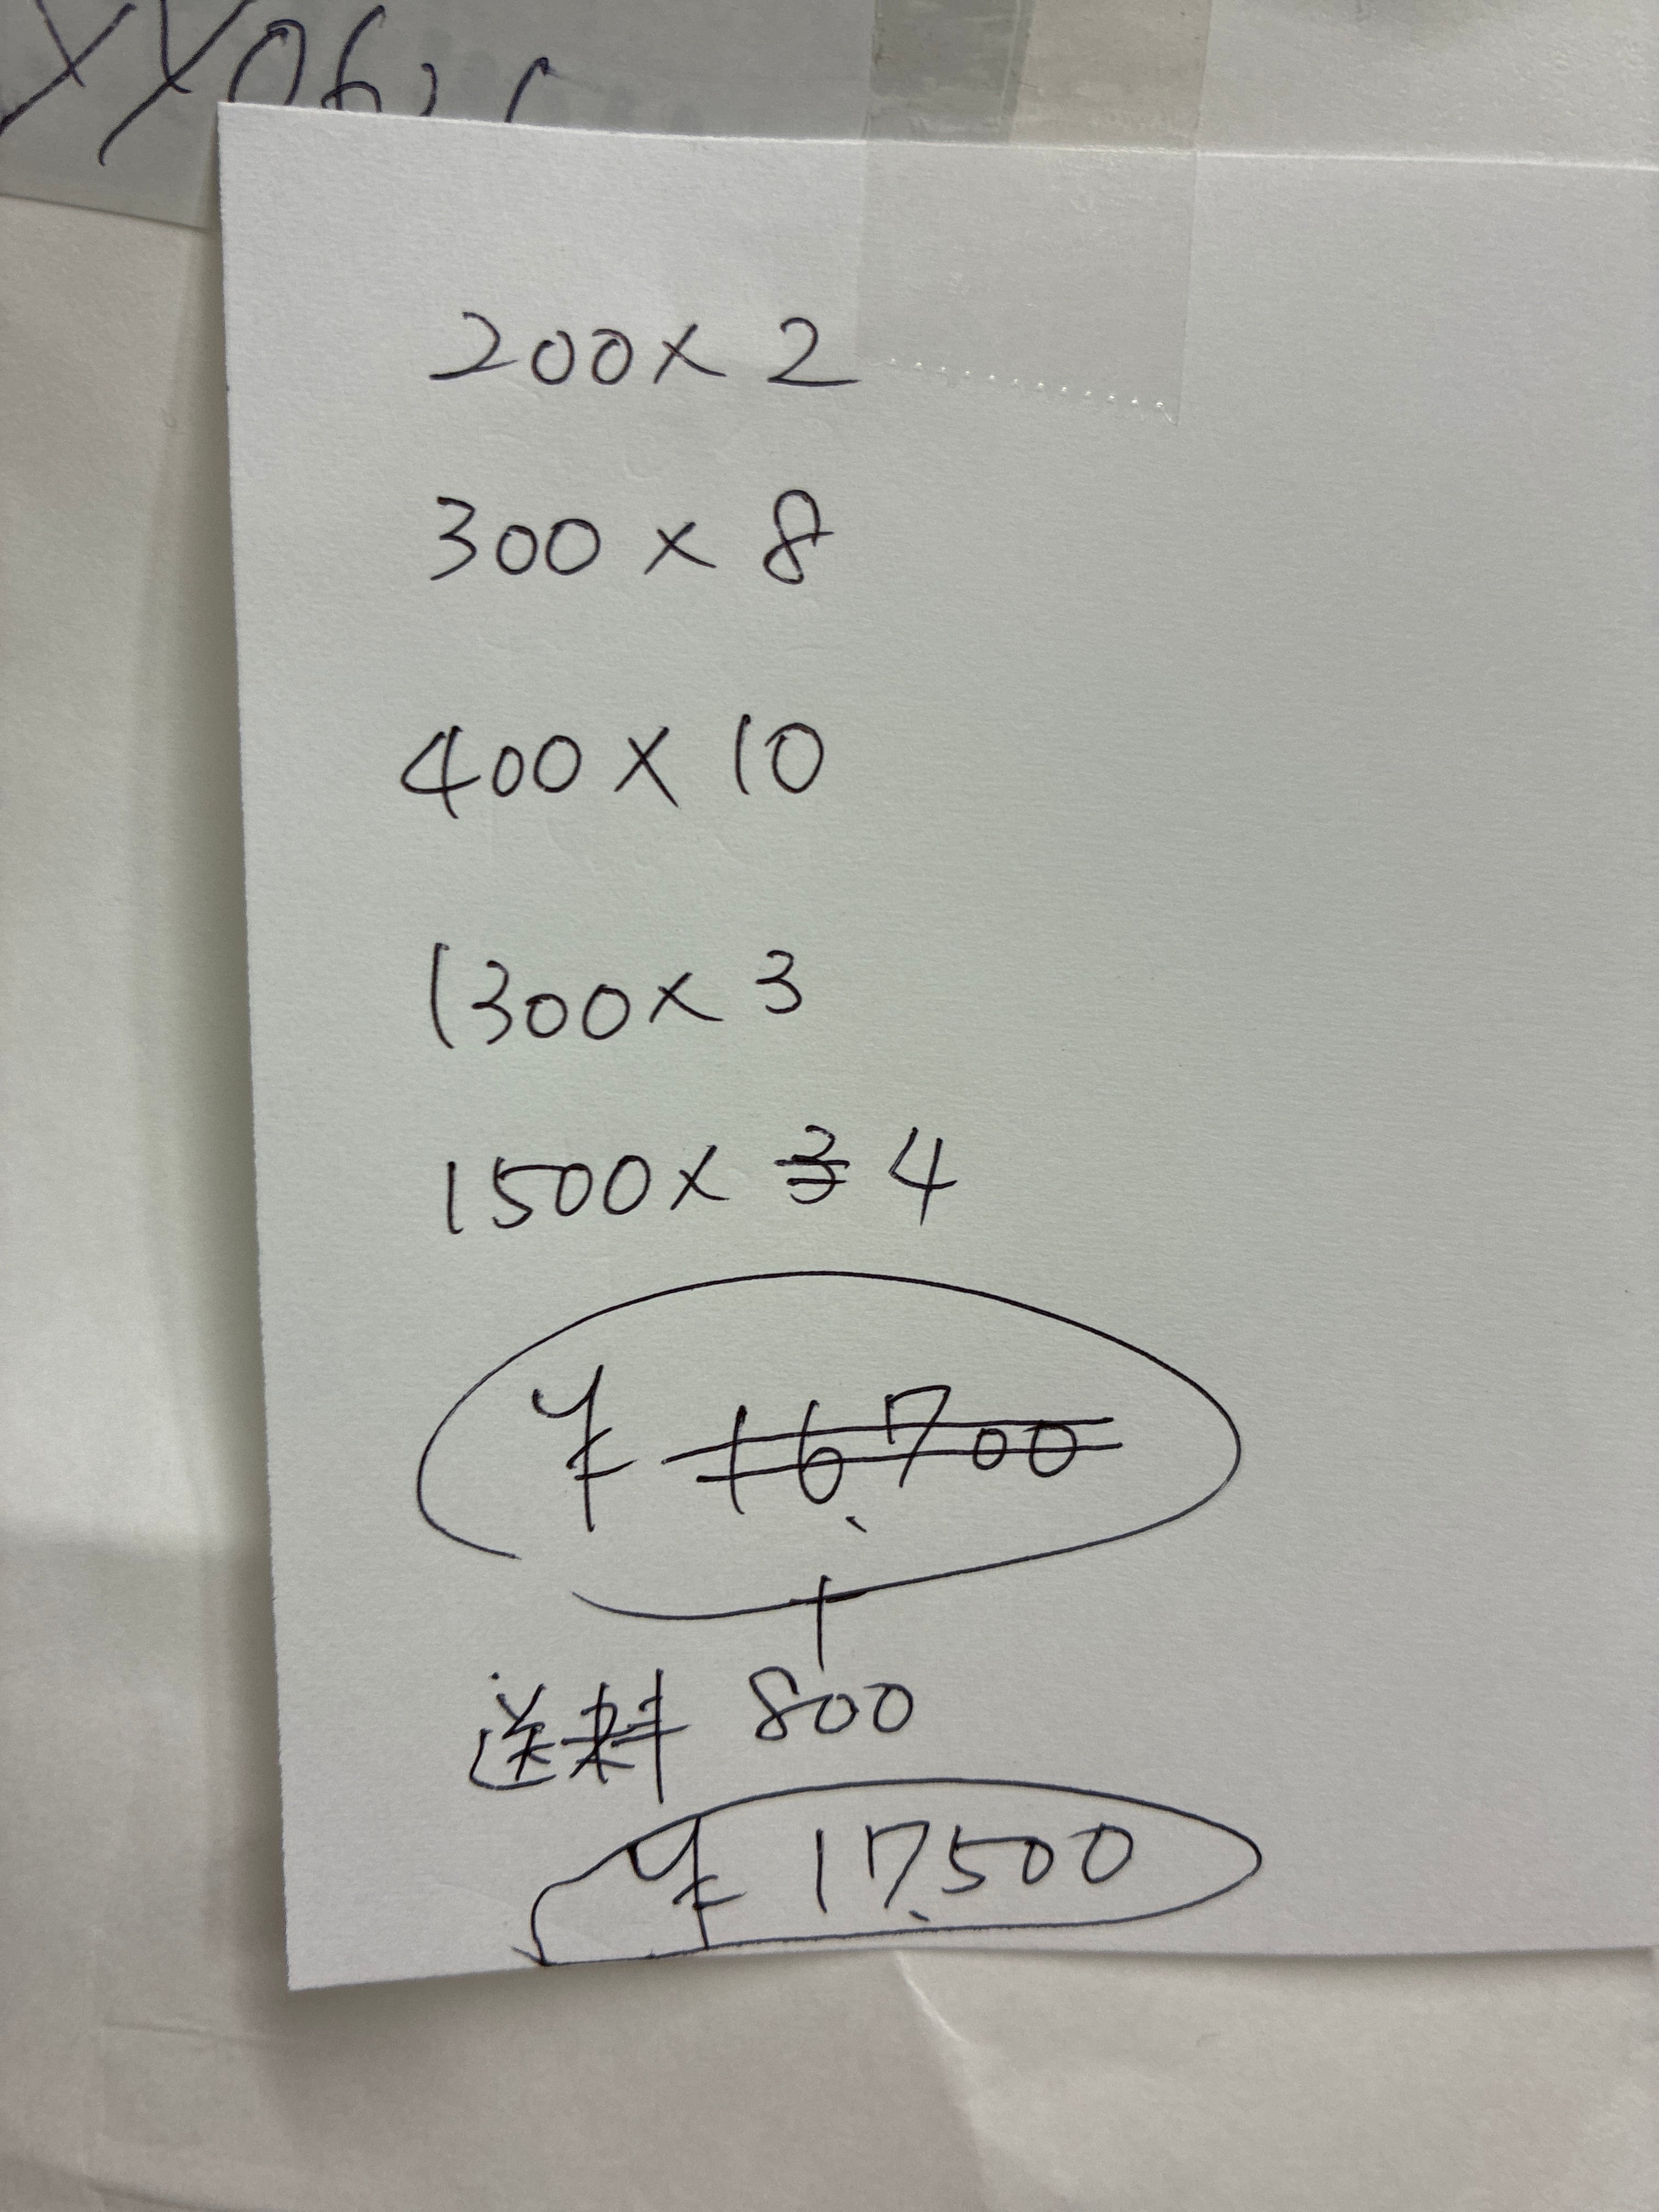 200×2
300×8
400×10
1300×3
1500×3 4
¥16,700
+
送料 800
¥17,500